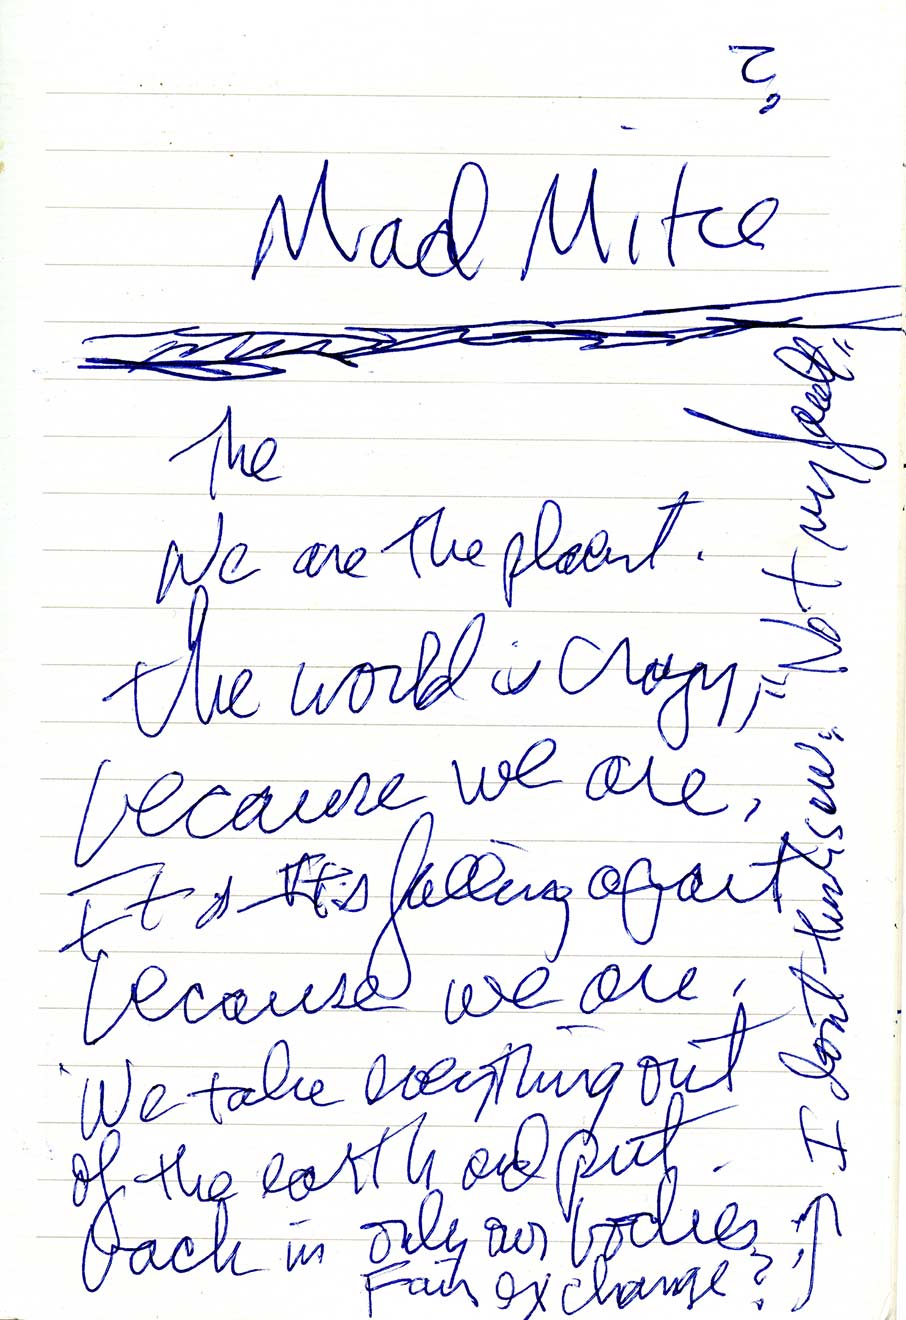 ?
Mad Mitce
The
We are the planet.
The world is crazy,
because we are,
It s It's falling apart
because we are,
We take everything out
of the earth and put
back in only our bodies
Fair exchange?
I don't think so.
"Not my fault"